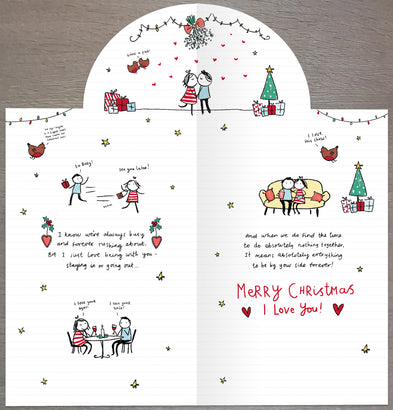 what a pair!
I love
this chase!
So Busy!
See you later!
I know we're always busy
and forever rushing about.
But I just love being with you -
staying in or going out...
And when we do find the time
to do absolutely nothing together,
It means absolutely everything
to be by your side forever!
MERRY CHRISTMAS
I Love You!
I love your
eyes!
I love your